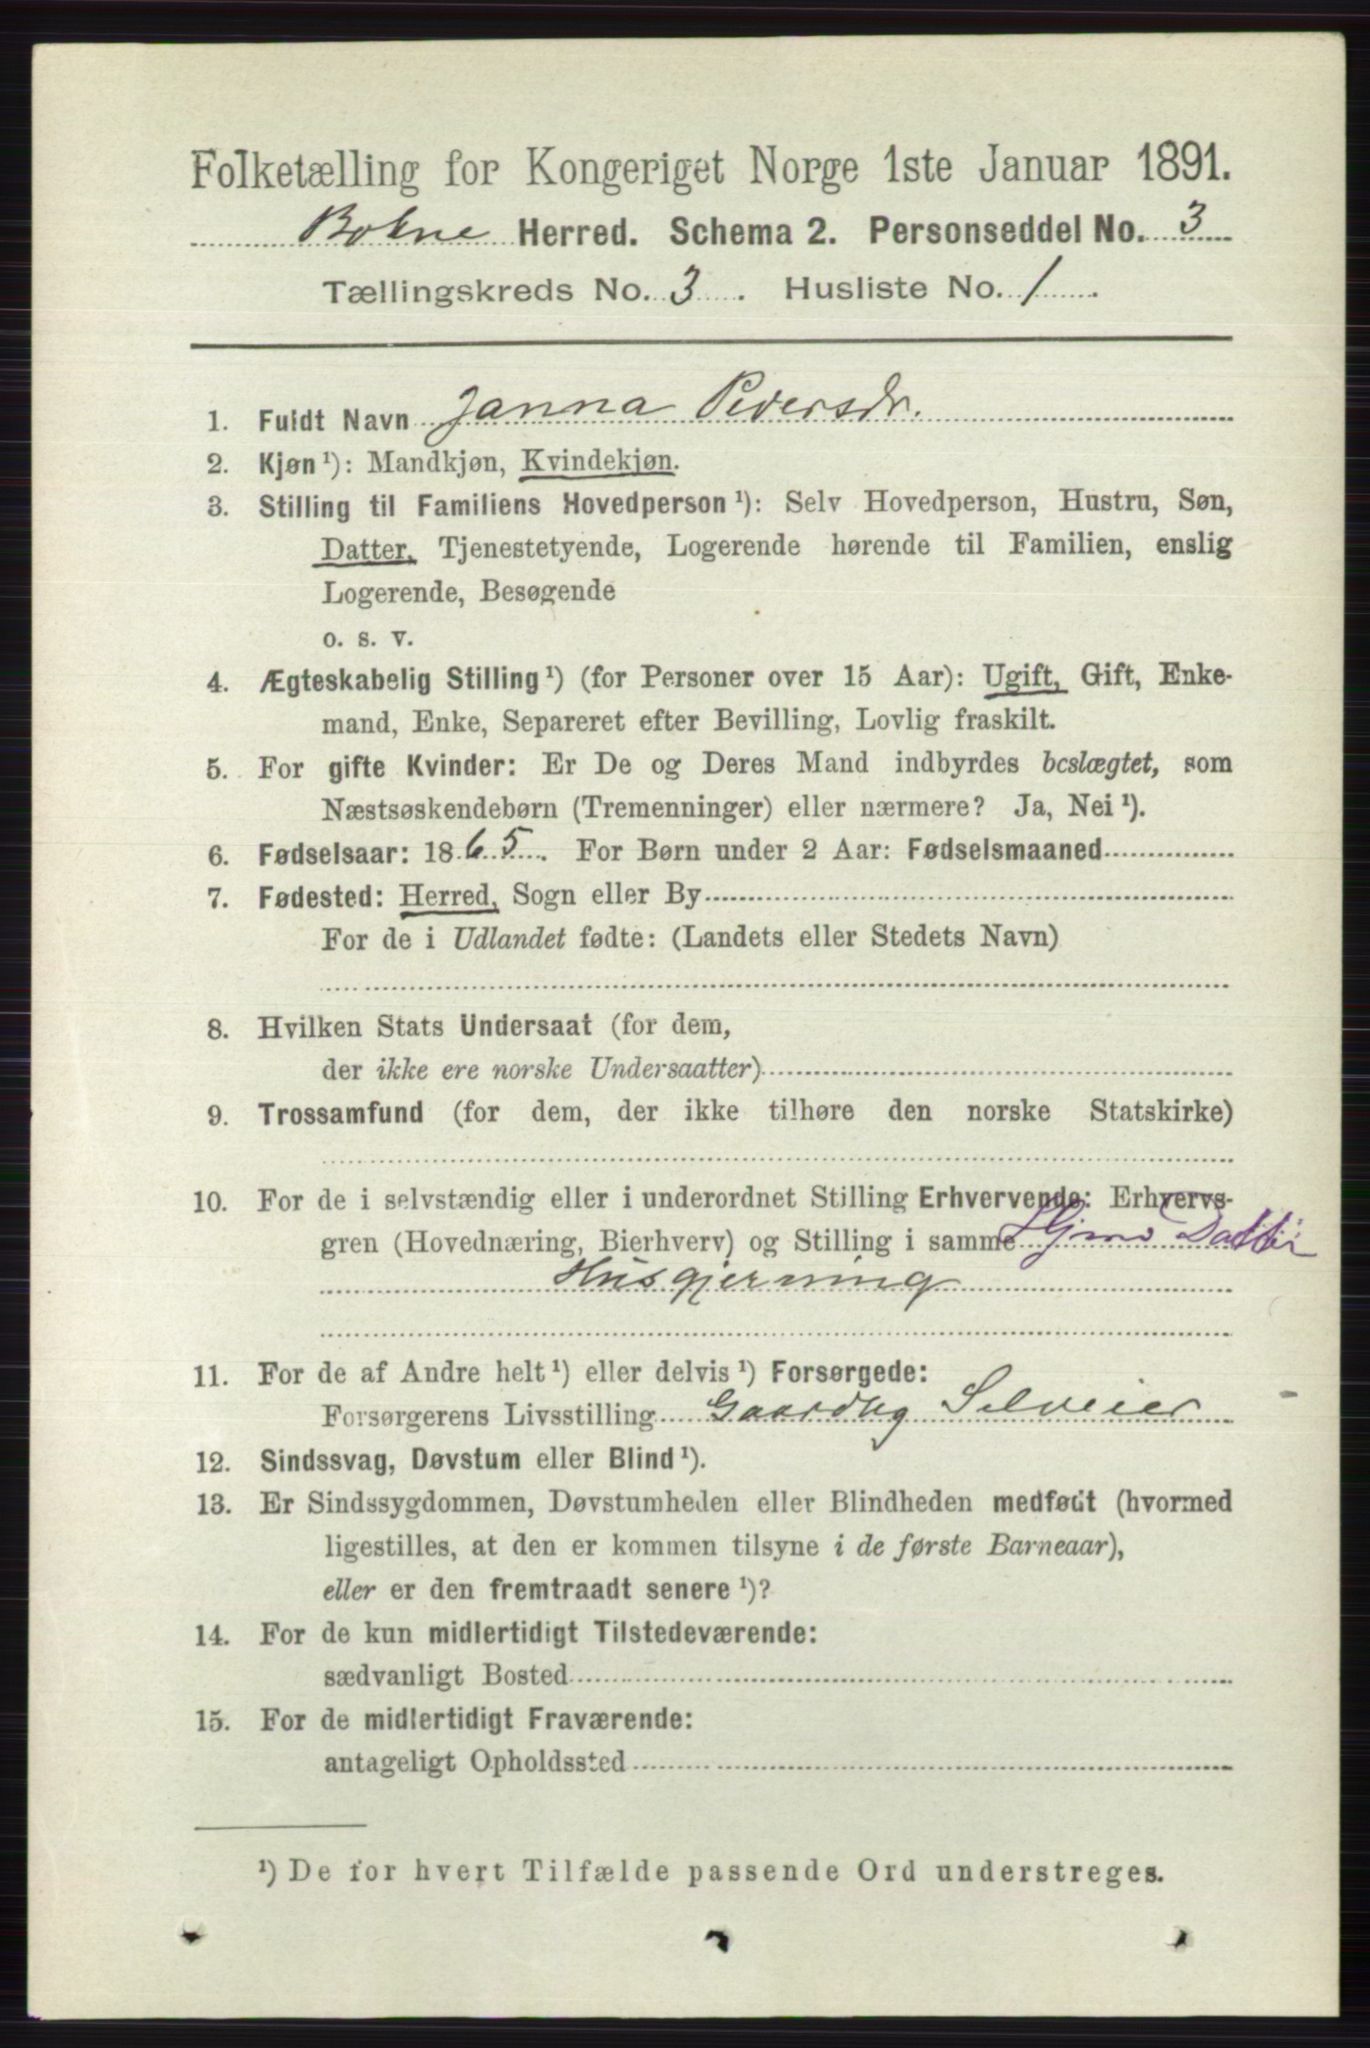 Folketælling for Kongeriget Norge 1ste Januar 1891.
Bokne Herred. Schema 2. Personseddel No. 3
Tællingskreds No. 3. Husliste No. 1.
1. Fuldt Navn Janna Pedersdr.
2. Kjøn¹): Mandkjøn, Kvindekjøn.
3. Stilling til Familiens Hovedperson¹): Selv Hovedperson, Hustru, Søn,
Datter, Tjenestetyende, Logerende hørende til Familien, enslig
Logerende, Besøgende
o. s. v.
4. Ægteskabelig Stilling¹) (for Personer over 15 Aar): Ugift, Gift, Enke-
mand, Enke, Separeret efter Bevilling, Lovlig fraskilt.
5. For gifte Kvinder: Er De og Deres Mand indbyrdes beslægtet, som
Næstsøskendebørn (Tremenninger) eller nærmere? Ja, Nei¹).
6. Fødselsaar: 1865. For Børn under 2 Aar: Fødselsmaaned
7. Fødested: Herred, Sogn eller By
For de i Udlandet fødte: (Landets eller Stedets Navn)
8. Hvilken Stats Undersaat (for dem,
der ikke ere norske Undersaatter)
9. Trossamfund (for dem, der ikke tilhøre den norske Statskirke)
10. For de i selvstændig eller i underordnet Stilling Erhvervende: Erhvervs-
gren (Hovednæring, Bierhverv) og Stilling i samme Hjmv Datter
Husgjerning
11. For de af Andre helt¹) eller delvis¹) Forsørgede:
Forsørgerens Livsstilling Gaardbg Selveier
12. Sindssvag, Døvstum eller Blind¹).
13. Er Sindssygdommen, Døvstumheden eller Blindheden medfødt (hvormed
ligestilles, at den er kommen tilsyne i de første Barneaar),
eller er den fremtraadt senere¹)?
14. For de kun midlertidigt Tilstedeværende:
sædvanligt Bosted
15. For de midlertidigt Fraværende:
antageligt Opholdssted
¹) De for hvert Tilfælde passende Ord understreges.